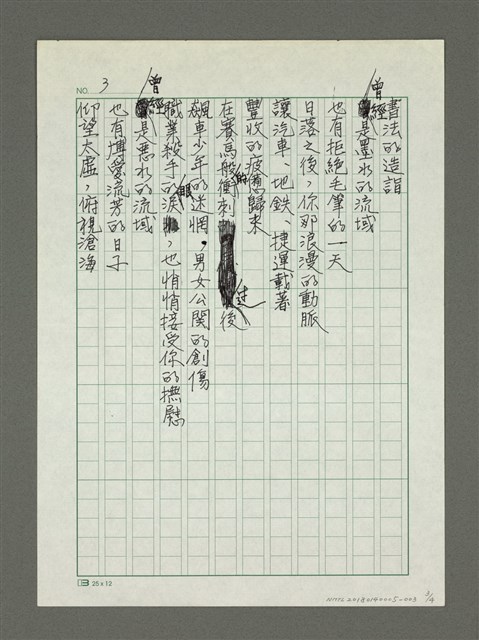 NO. 3
書法的造詣
曾經是墨水的流域
也有拒絕毛筆的一天
日落之後，你那浪漫的動脈
讓汽車、地鉄、捷運載著
豐收的疲憊歸來
在賽馬般的衝刺過後
飆車少年的迷惘，男女公關的創傷
職業殺手的眼淚，也悄悄接受你的撫慰
曾經是惡水的流域
也有博愛流芳的日子
仰望太虛，俯視滄海
25 x 12
NMTL20180140005-003 3/4